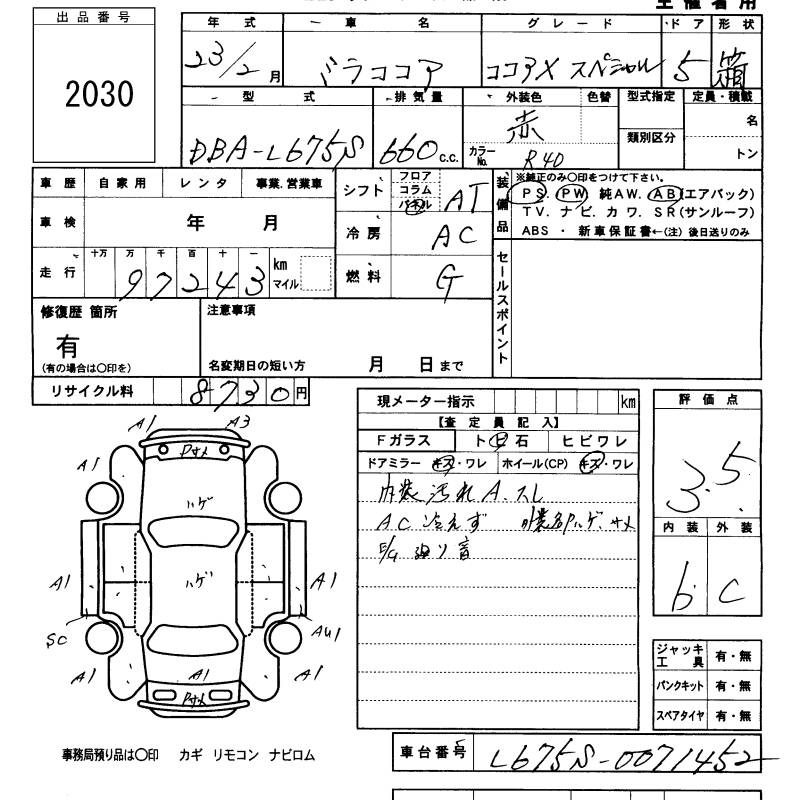 出品番号
2030
年式 車名 グレード ドア 形状
23/2月 ミラココア ココアX スペシャル 5 箱
型式 排気量 外装色 色替 型式指定 定員・積載
DBA-L675S 660c.c. 赤 カラーNo. R40 類別区分 名
トン
車歴 自家用 レンタ 事業.営業車
車検 年 月
走行 十万 万 千 百 十 一
97243 km マイル
シフト フロア コラム パネル AT
冷房 AC
燃料 G
装備品
※純正のみ〇印をつけて下さい。
PS. PW 純AW. AB(エアバック)
TV. ナビ. カワ. SR(サンルーフ)
ABS ・ 新車保証書←(注) 後日送りのみ
セールスポイント
修復歴 箇所
有
(有の場合は〇印を)
注意事項
名変期日の短い方 月 日まで
リサイクル料 8730円
現メーター指示 km
【査定員記入】
Fガラス ト ビ 石 ヒビワレ
ドアミラー キズ・ワレ ホイール(CP) キズ・ワレ
内装汚れ A.スレ
AC 冷えず 外装各Pハゲ.サメ
E/G 廻り音
評価点
3.5
内装 外装
b C
ジャッキ工具 有・無
パンクキット 有・無
スペアタイヤ 有・無
A1 A3
Pサメ
A1 A1
ハゲ
ハゲ
A1 A1
SC AU1
A1 A1 A1
Pサメ
事務局預り品は〇印 カギ リモコン ナビロム
車台番号 L675S-0071452